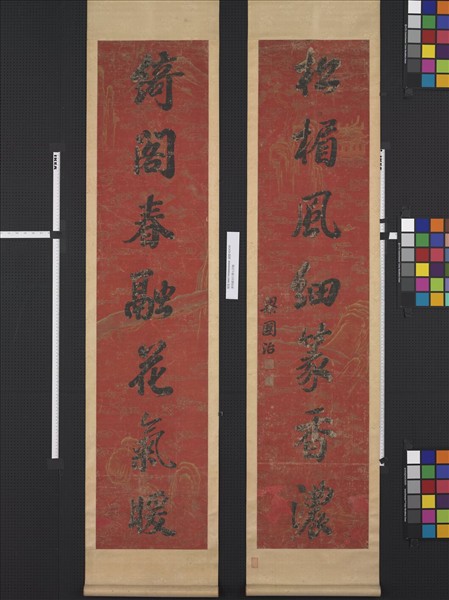 松楣風細篆香濃
梁國治
綺閣春融花氣暖